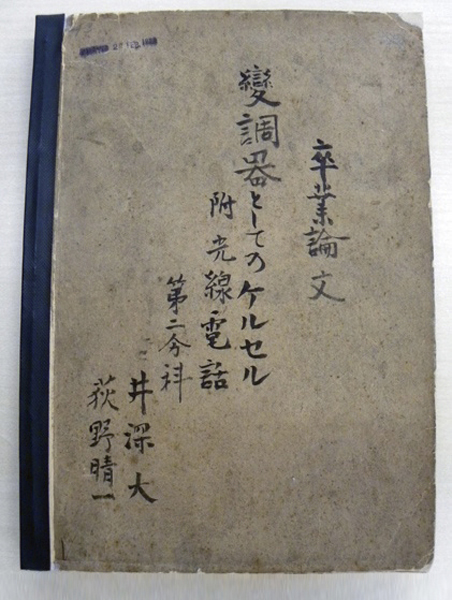 卒業論文
變調器としてのケルセル
附光線電話
第二分科
井深大
荻野晴一